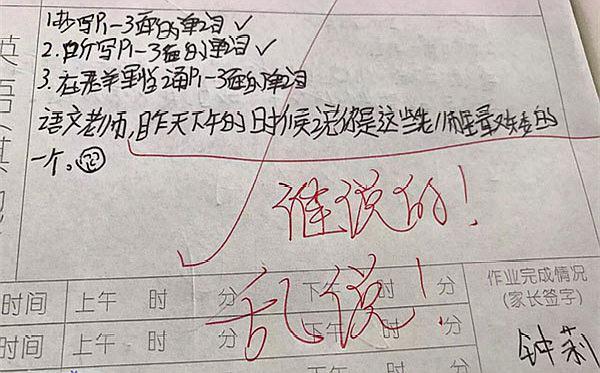 英
语
其
1.抄写P1-3面的单词 ✓
2. 写P1-3面的单词 ✓
3.在 2 P1-3面的单词
语文老师,昨天下午的时候说你是这些老师里最矮的
一个。
谁说的!
乱说!
时间 上午 时 分 下午 时 分
时间 上午 时 分 下午 时 分
作业完成情况
(家长签字)
钟莉